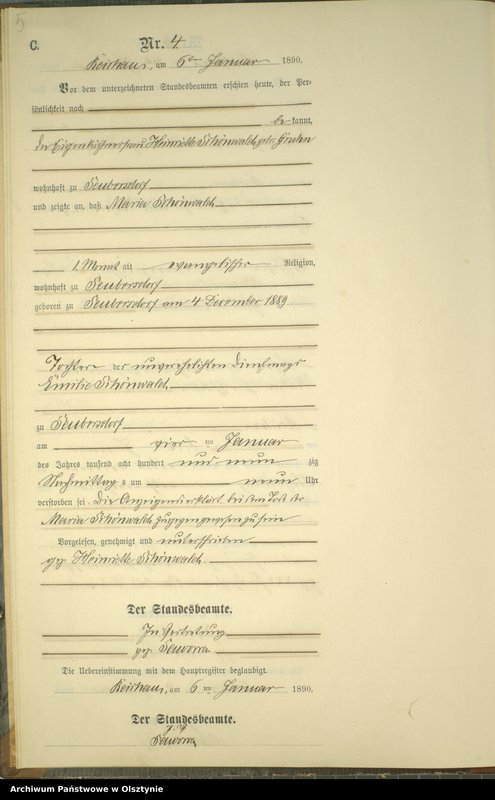 5
C.
Nr. 4
am 6ten Januar 1890.
Vor dem unterzeichneten Standesbeamten erschien heute, der Per-
sönlichkeit nach
be kannt,
die Eigenkäthnerfrau Henriette Schönwald, geb.
wohnhaft zu Seubersdorf
und zeigte an, daß Maria Schönwald
1 Monat alt evangelischer Religion,
wohnhaft zu Seubersdorf
geboren zu Seubersdorf am 4 Dezember 1889
Tochter der unverehelichten Dienstmagd
Emilie Schönwald
zu Seubersdorf
am vier ten Januar
des Jahres tausend acht hundert und neun zig
Nachmittag s um neun Uhr
verstorben sei. Die Anzeigende erklärt bei dem Tode der
Maria Schönwald zugegen gewesen zu sein
Vorgelesen, genehmigt und unterschrieben
gez. Heinriette Schönwald.
Der Standesbeamte.
In Vertretung
gez.
Die Uebereinstimmung mit dem Hauptregister beglaubigt.
am 6 ten Januar 1890.
Der Standesbeamte.
Archiwum Państwowe w Olsztynie